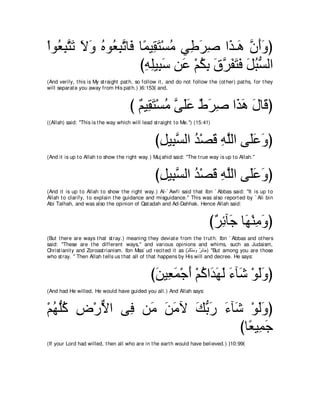 (وَأَنَّ هَـذَا صِرَطِي مُسْتَقِيمًا فَاتَّبِعُوهُ وَلاَ تَتَّبِعُواْ
السُّبُلَ فَتَفَرَّقَ بِكُمْ عَن سَبِيلِهِ)
(And verily, this is My straight path, so follow it, and do not follow the (other) paths, for they
will separate you away from His path.) (6:153) and,
(قَالَ هَذَا صِرَطٌ عَلَىَّ مُسْتَقِيمٌ )
((Allah) said: "This is the way which will lead straight to Me.") (15:41)
(وَعَلَى اللَّهِ قَصْدُ السَّبِيلِ)
(And it is up to Allah to show the right way.) Mujahid said: "The true way is up to Allah."
(وَعَلَى اللَّهِ قَصْدُ السَّبِيلِ)
(And it is up to Allah to show the right way.) Al-`Awfi said that Ibn `Abbas said: "It is up to
Allah to clarify, to explain the guidance and misguidance." This was also reported by `Ali bin
Abi Talhah, and was also the opinion of Qatadah and Ad-Dahhak. Hence Allah said:
(وَمِنْهَا جَآئِرٌ)
(But there are ways that stray.) meaning they deviate from the truth. Ibn `Abbas and others
said: "These are the different ways," and various opinions and whims, such as Judaism,
Christianity and Zoroastrianism. Ibn Mas`ud recited it as "But among you are those
who stray." Then Allah tells us that all of that happens by His will and decree. He says:
(وَلَوْ شَآءَ لَهَدَاكُمْ أَجْمَعِينَ)
(And had He willed, He would have guided you all.) And Allah says:
(وَلَوْ شَآءَ رَبُّكَ لآمَنَ مَن فِى الاٌّرْضِ كُلُّهُمْ
جَمِيعًا)
(If your Lord had willed, then all who are in the earth would have believed.) (10:99(